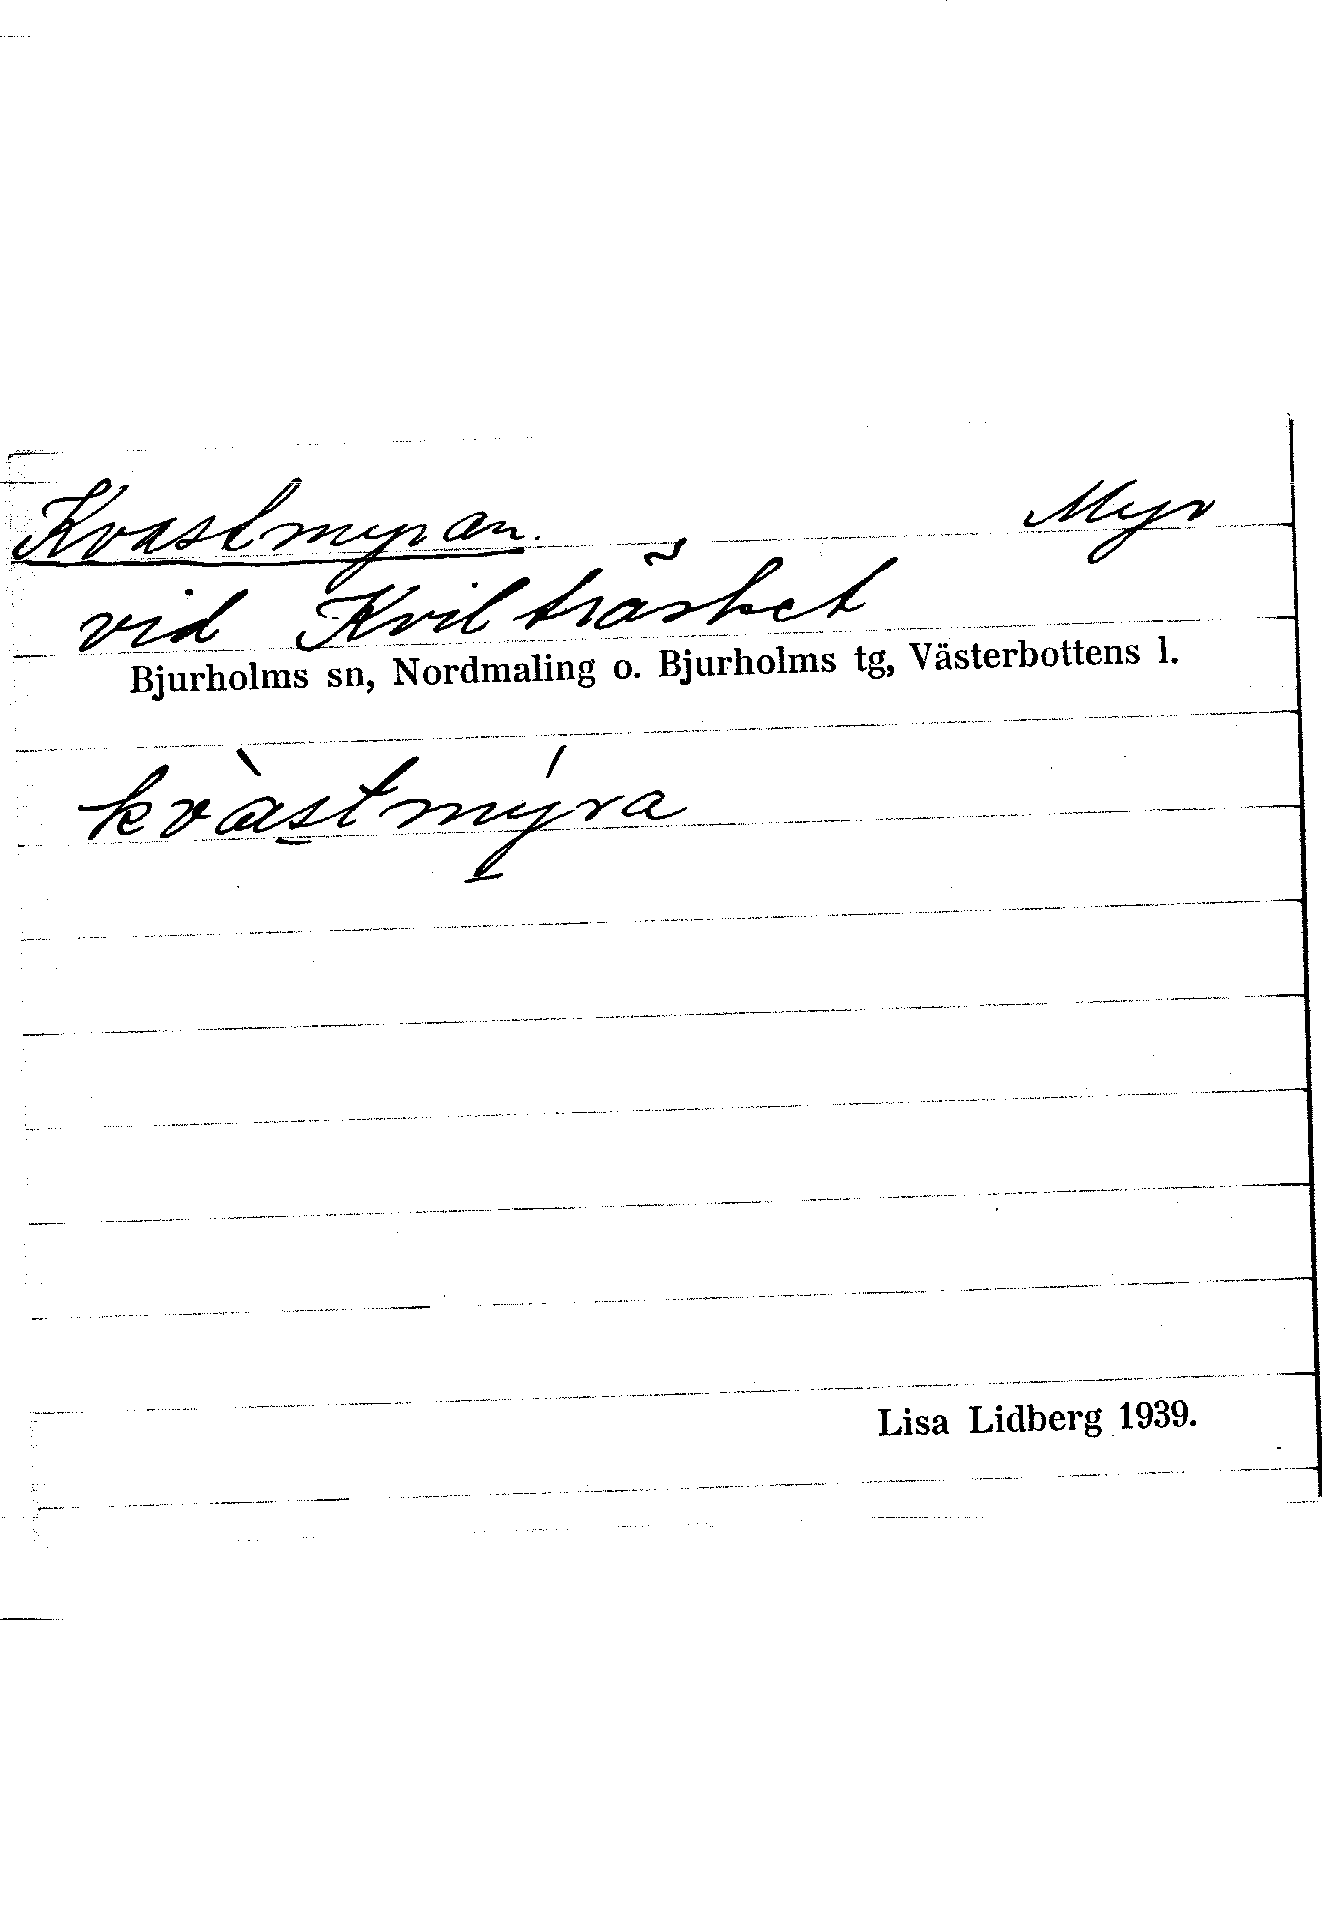 Kvastmyran. Myr
vid Kvilträsket
Bjurholms sn, Nordmaling o. Bjurholms tg, Västerbottens l.
kvàstmýra
Lisa Lidberg 1939.